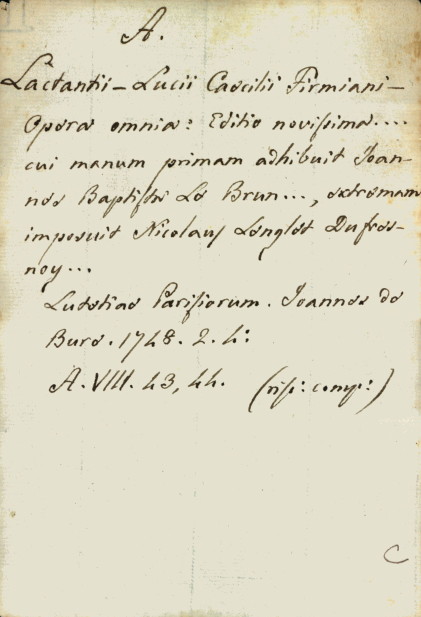 A.
Lactantii - Lucii Caecilii Firmiani -
Opera omnia: Editio novissima....
cui manum primam adhibuit Joan-
nes Baptista Le Brun..., extremam
imposuit Nicolaus Lenglet Dufres-
noy...
Lutetiae Parisiorum. Joannes de
Bure. 1748. 2. 4:
A. VIII. 43, 44. (risp: comp:)
C